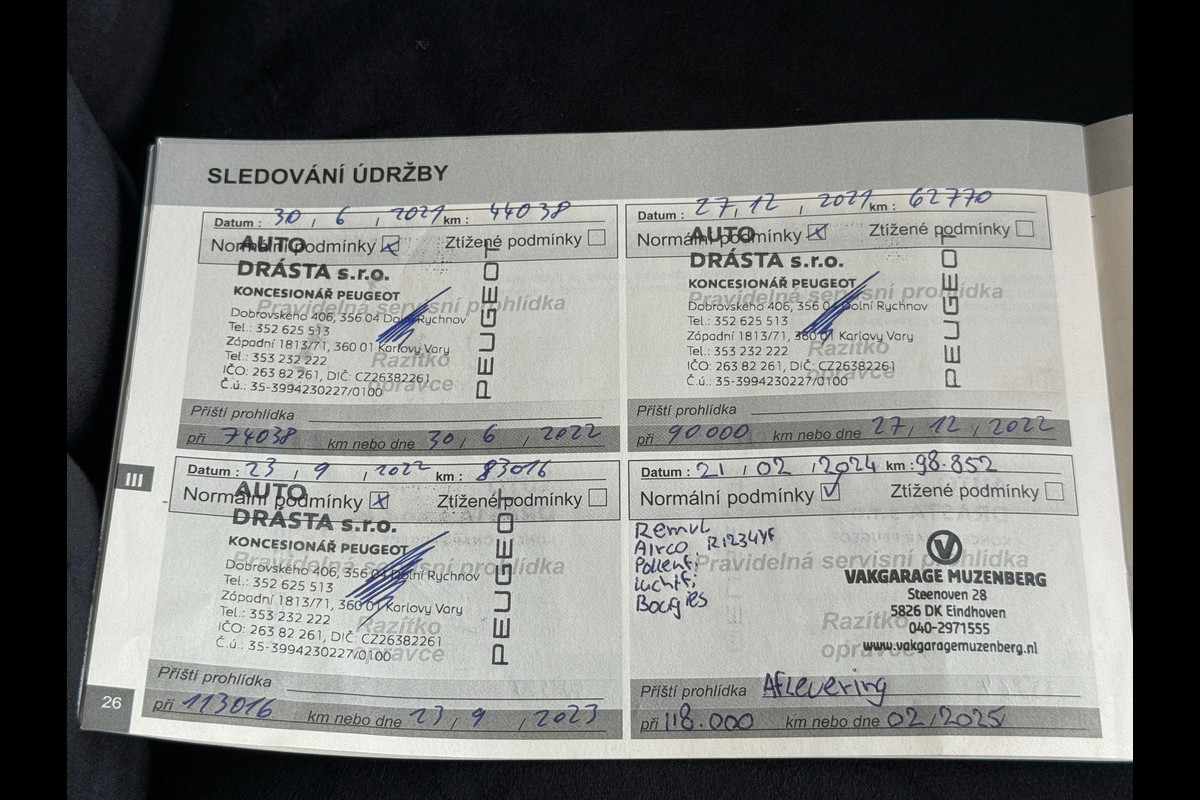 SLEDOVÁNÍ ÚDRŽBY
Datum : 30 / 6 / 2021 km : 44038
Normální podmínky ☒ Ztížené podmínky ☐
AUTO
DRÁSTA s.r.o.
KONCESIONÁŘ PEUGEOT
Pravidelná servisní prohlídka
Dobrovského 406, 356 04 Dolní Rychnov
Tel.: 352 625 513
Západní 1813/71, 360 01 Karlovy Vary
Tel.: 353 232 222
IČO: 263 82 261, DIČ: CZ26382261
Č.ú.: 35-3994230227/0100
Razítko
opravce
PEUGEOT
Příští prohlídka
při 74038 km nebo dne 30 / 6 / 2022
Datum : 27 / 12 / 2021 km : 62770
Normální podmínky ☒ Ztížené podmínky ☐
AUTO
DRÁSTA s.r.o.
KONCESIONÁŘ PEUGEOT
Pravidelná servisní prohlídka
Dobrovského 406, 356 04 Dolní Rychnov
Tel.: 352 625 513
Západní 1813/71, 360 01 Karlovy Vary
Tel.: 353 232 222
IČO: 263 82 261, DIČ: CZ26382261
Č.ú.: 35-3994230227/0100
Razítko
opravce
PEUGEOT
Příští prohlídka
při 90000 km nebo dne 27 / 12 / 2022
III
Datum : 23 / 9 / 2022 km : 83016
Normální podmínky ☒ Ztížené podmínky ☐
AUTO
DRÁSTA s.r.o.
KONCESIONÁŘ PEUGEOT
Pravidelná servisní prohlídka
Dobrovského 406, 356 04 Dolní Rychnov
Tel.: 352 625 513
Západní 1813/71, 360 01 Karlovy Vary
Tel.: 353 232 222
IČO: 263 82 261, DIČ: CZ26382261
Č.ú.: 35-3994230227/0100
Razítko
opravce
PEUGEOT
Příští prohlídka
při 113016 km nebo dne 23 / 9 / 2023
Datum : 21 / 02 / 2024 km : 98.852
Normální podmínky ☑ Ztížené podmínky ☐
Remvl
Airco R1234YF
Pollenfi
Luchtfi
Bougies
Pravidelná servisní prohlídka
VAKGARAGE MUZENBERG
Steenoven 28
5826 DK Eindhoven
040-2971555
www.vakgaragemuzenberg.nl
Razítko
opravce
Příští prohlídka Aflevering
při 118.000 km nebo dne 02/2025
26